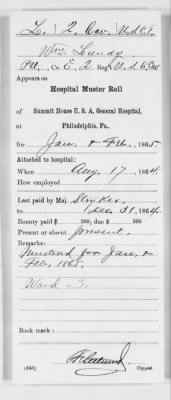 L. 2 Cav. U.S.C.T.
Wm. Lundy
Pvt., Co. E, 2 Reg't U.S.C. Cav
Appears on
Hospital Muster Roll
of SUMMIT HOUSE U. S. A. General Hospital,
at Philadelphia, Pa.,
for Jan. & Feb., 1865.
Attached to hospital:
When Aug. 17, 1864.
How employed
Last paid by Maj. Stryker
to Dec 31, 1864.
Bounty paid $ 100; due $ 100
Present or absent Present.
Remarks:
Mustered for Jan. &
Feb. 1865.
Ward
Book mark:
(343)
Copyist.